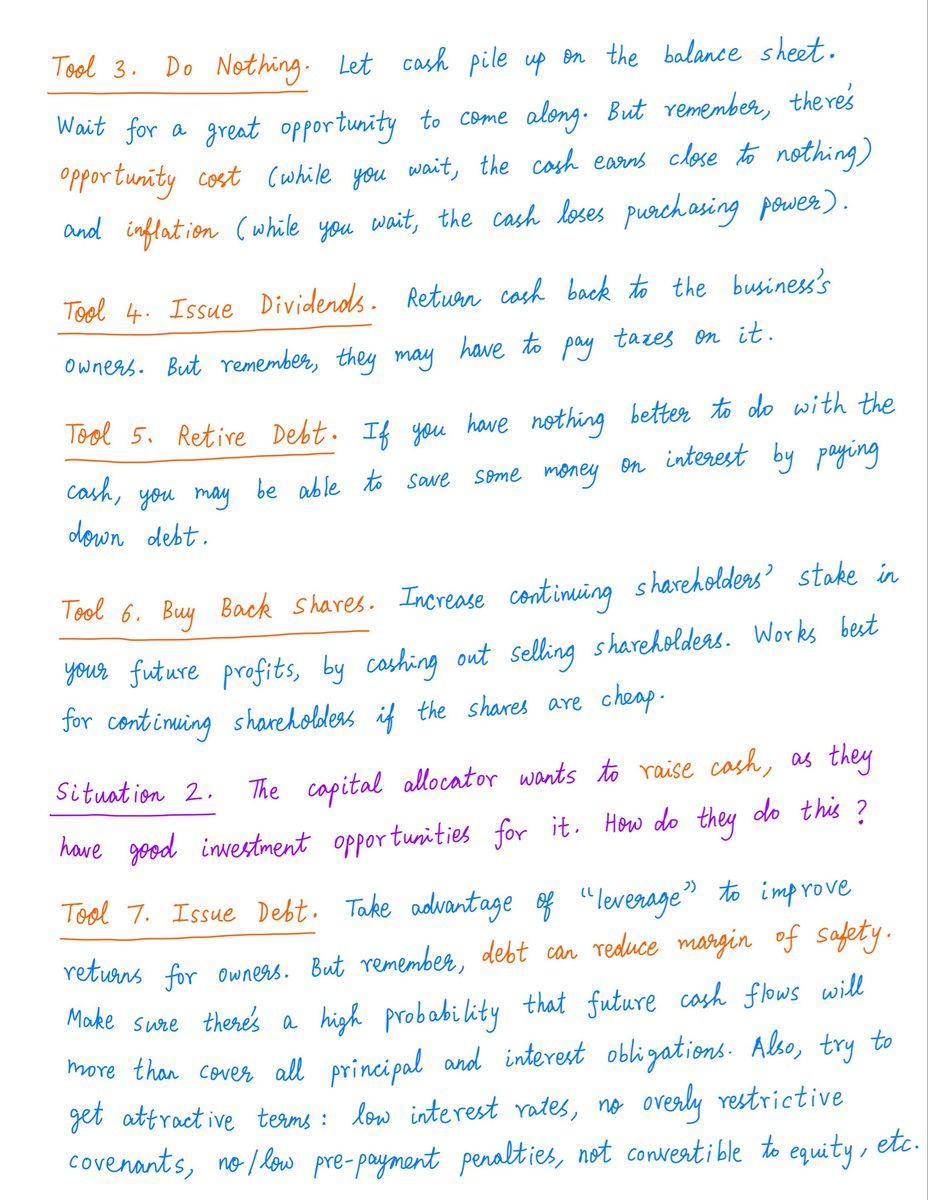 Tool 3. Do Nothing. Let cash pile up on the balance sheet.
Wait for a great opportunity to come along. But remember, there's
opportunity cost (while you wait, the cash earns close to nothing)
and inflation (while you wait, the cash loses purchasing power).
Tool 4. Issue Dividends. Return cash back to the business's
owners. But remember, they may have to pay taxes on it.
Tool 5. Retire Debt. If you have nothing better to do with the
cash, you may be able to save some money on interest by paying
down debt.
Tool 6. Buy Back Shares. Increase continuing shareholders' stake in
your future profits, by cashing out selling shareholders. Works best
for continuing shareholders if the shares are cheap.
Situation 2. The capital allocator wants to raise cash, as they
have good investment opportunities for it. How do they do this?
Tool 7. Issue Debt. Take advantage of "leverage" to improve
returns for owners. But remember, debt can reduce margin of safety.
Make sure there's a high probability that future cash flows will
more than cover all principal and interest obligations. Also, try to
get attractive terms: low interest rates, no overly restrictive
covenants, no/low pre-payment penalties, not convertible to equity, etc.